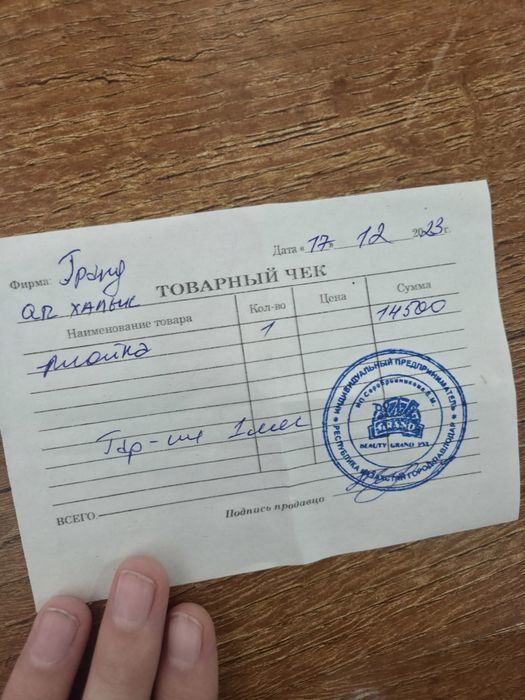 Дата «17» 12 2023г.
Фирма: Грэнд
ТОВАРНЫЙ ЧЕК
Наименование товара Кол-во Цена Сумма
плойка 1 14500
Гар-ия 1 мес
ИНДИВИДУАЛЬНЫЙ ПРЕДПРИНИМАТЕЛЬ
ИП Серебрянникова
GRAND
BEAUTY GRAND PVL
РЕСПУБЛИКА КАЗАХСТАН ГОРОД ПАВЛОДАР
ВСЕГО
Подпись продавца